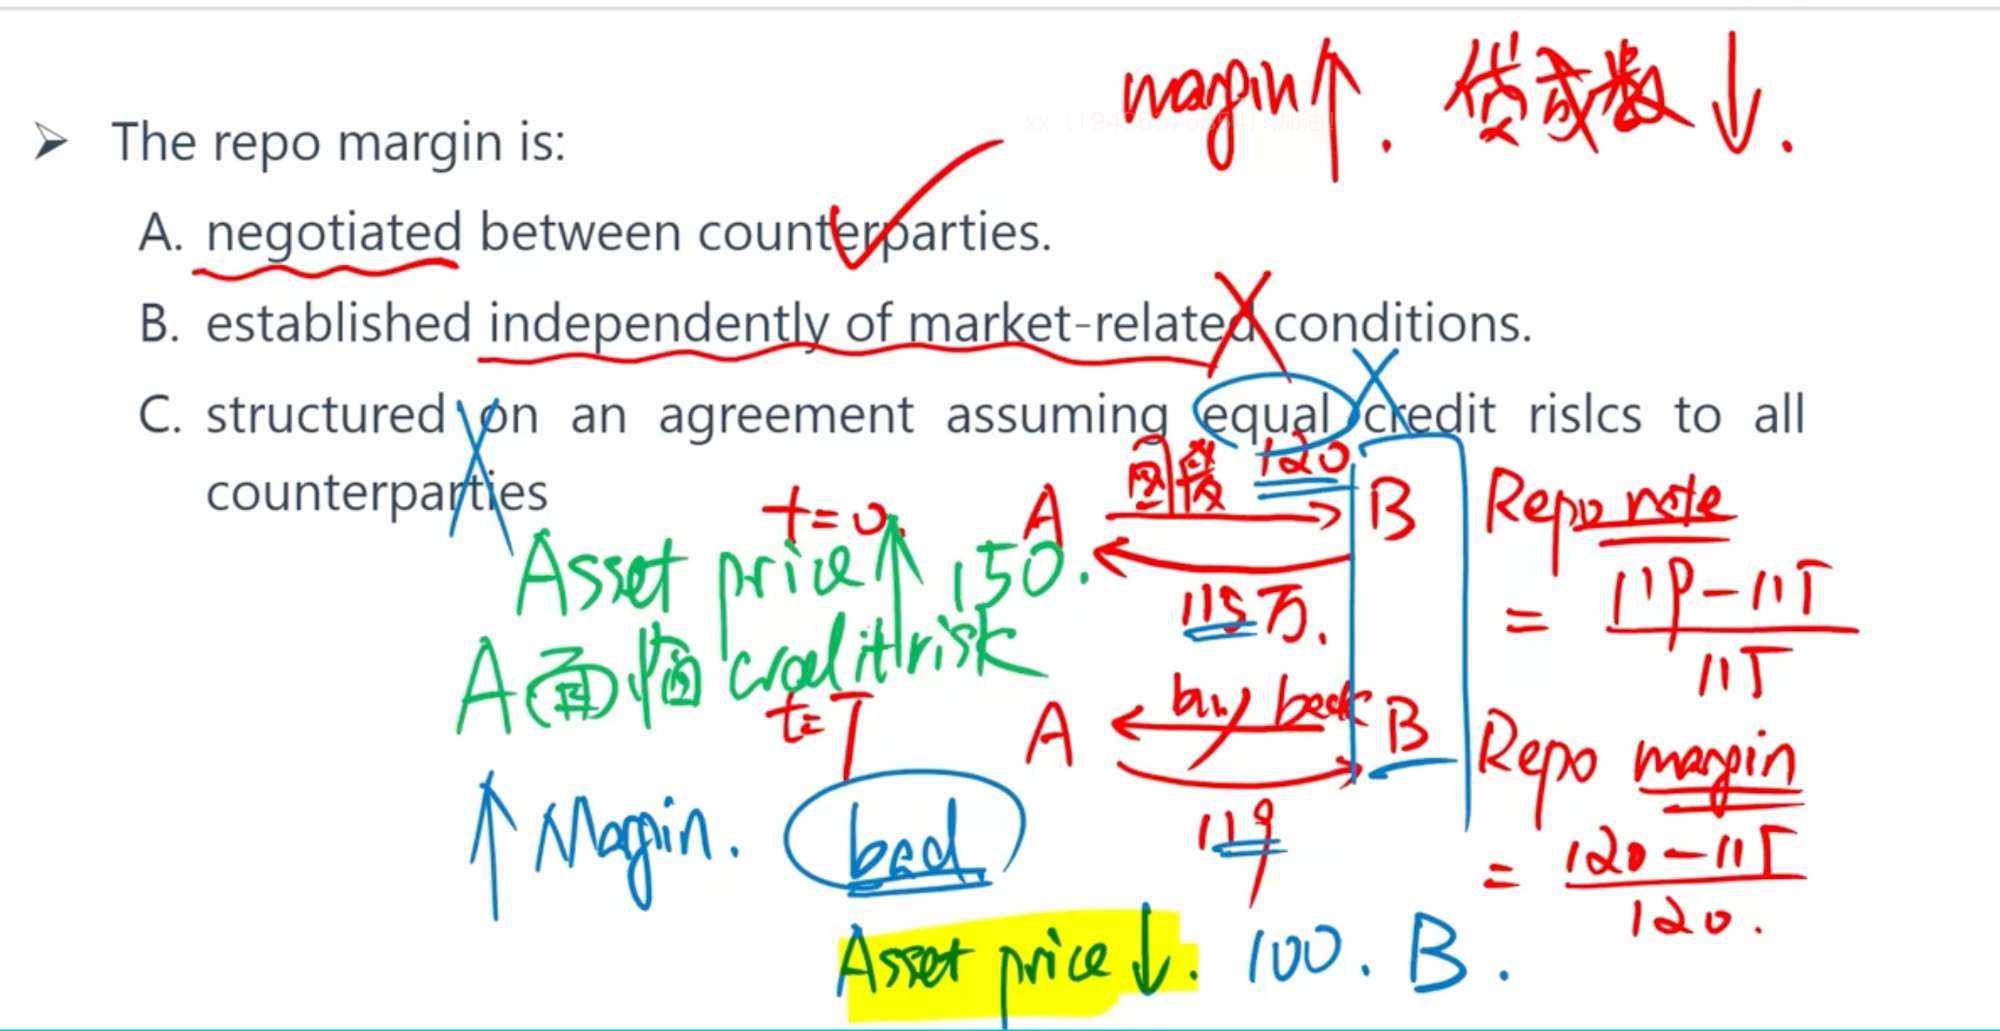 margin↑. 贷款成数↓.
➢ The repo margin is:
A. negotiated between counterparties.
B. established independently of market-related conditions.
C. structured on an agreement assuming equal credit rislcs to all
counterparties
120
t=0 A B Repo rate
Asset price↑ 150.
115万. = 119-115
115
A credit risk
t=T A buy back B Repo margin
↑ Margin. bad 119 = 120-115
120.
Asset price↓. 100. B.